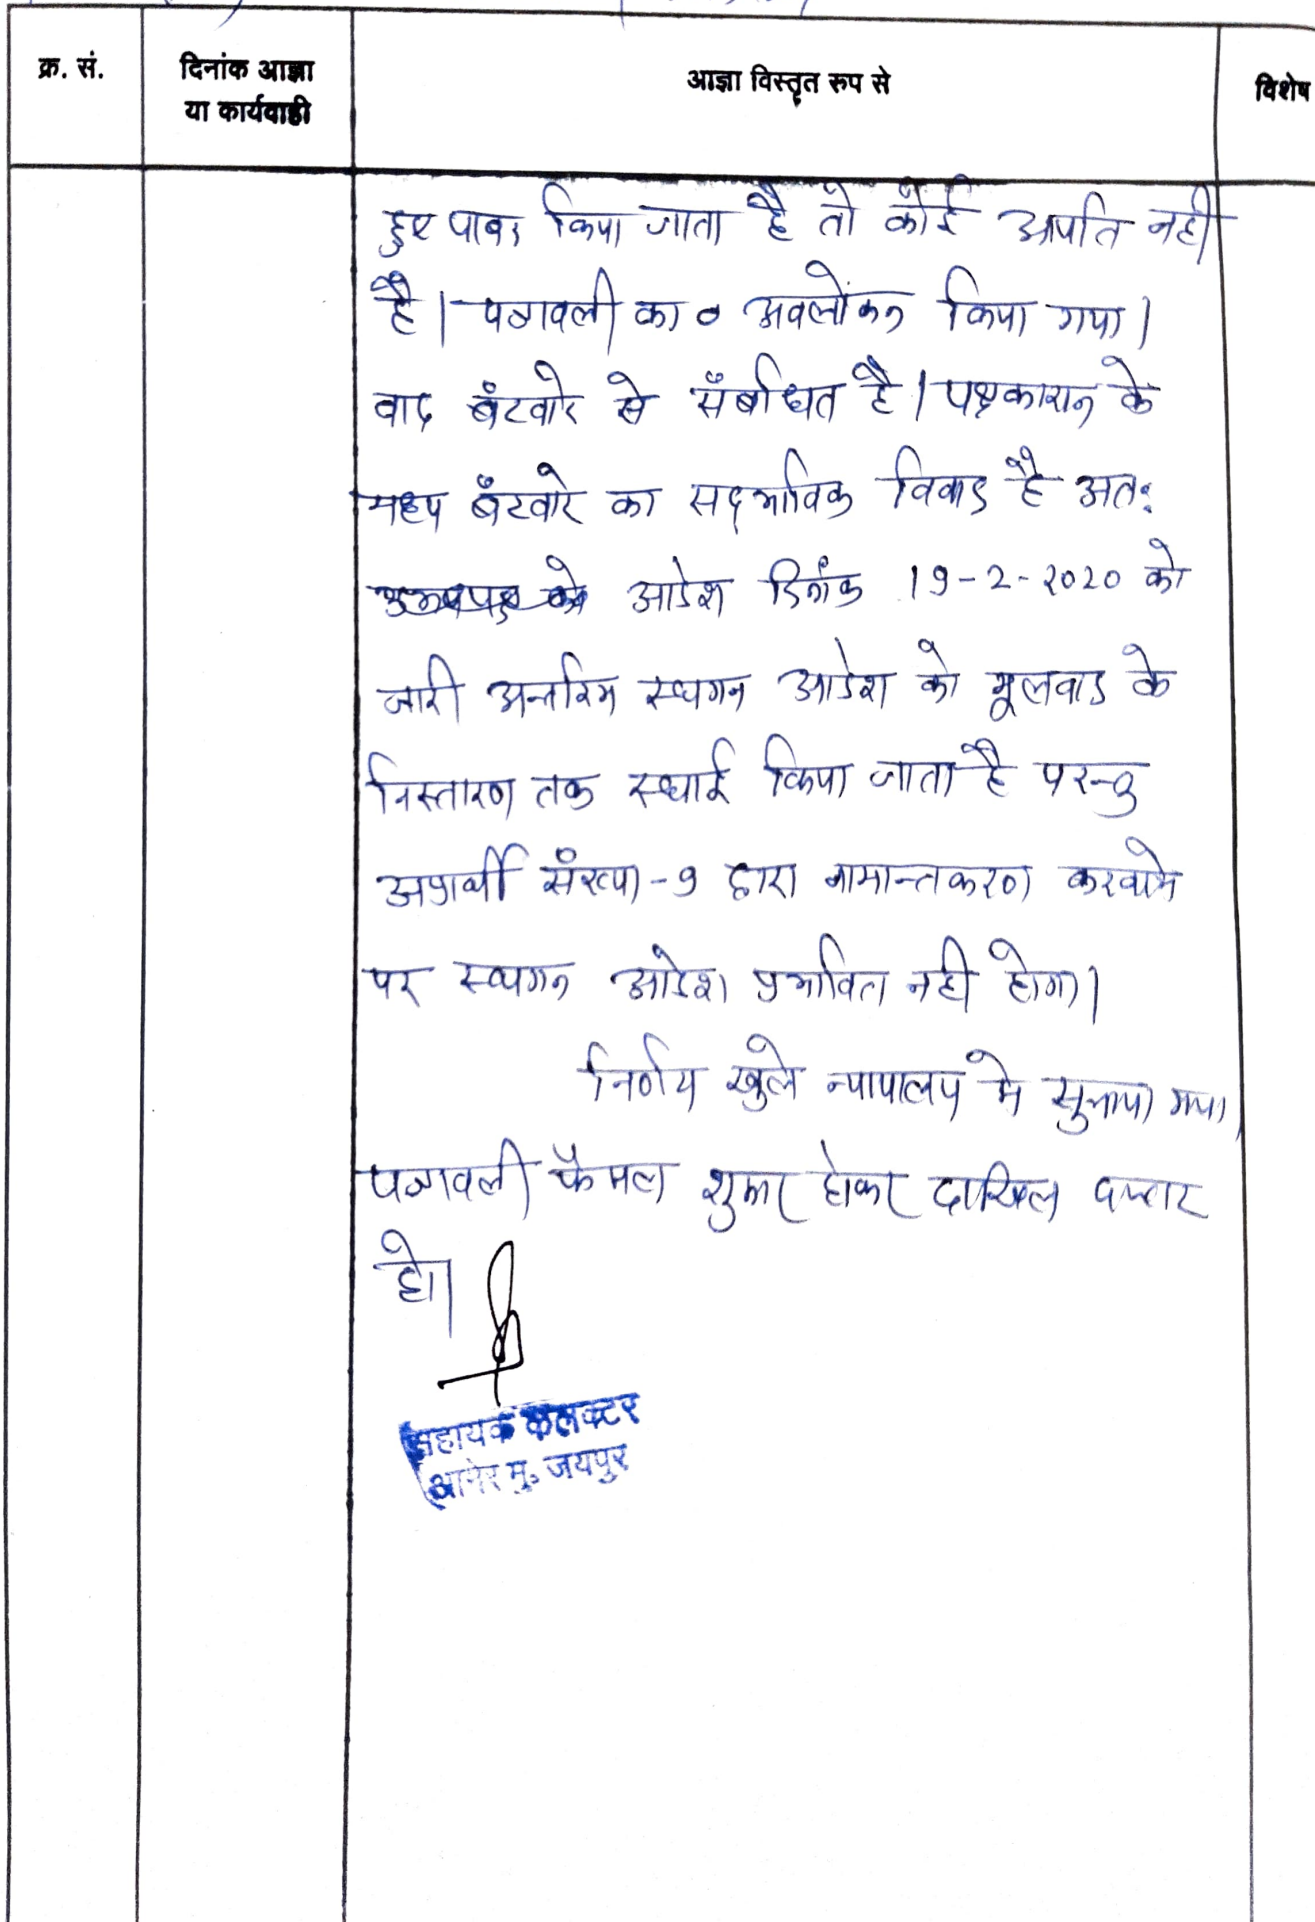 क्र. सं. दिनांक आज्ञा या कार्यवाही आज्ञा विस्तृत रुप से विशेष
हुए पाबन्द किया जाता है तो कोई आपति नही
है। पत्रावली का अवलोकन किया गया।
वाद बंटवारे से संबंधित है। पक्षकारान के
मध्य बंटवारे का सद्भाविक विवाद है अतः
आदेश दिनांक 19-2-2020 को
जारी अन्तरिम स्थगन आदेश को मूलवाद के
निस्तारण तक स्थाई किया जाता है परन्तु
अप्रार्थी संख्या-9 द्वारा नामान्तकरण करवाने
पर स्थगन आदेश प्रभावित नही होगा।
निर्णय खुले न्यायालय मे सुनाया गया।
पत्रावली फैसल शुमार होकर दाखिल दफ्तर
हो।
सहायक कलक्टर
आमेर मु. जयपुर